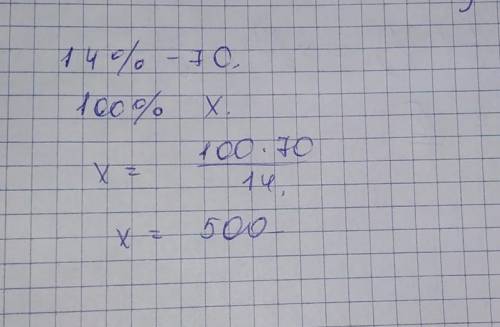 14% - 70.
100% x.
x = 100·70 / 14.
x = 500